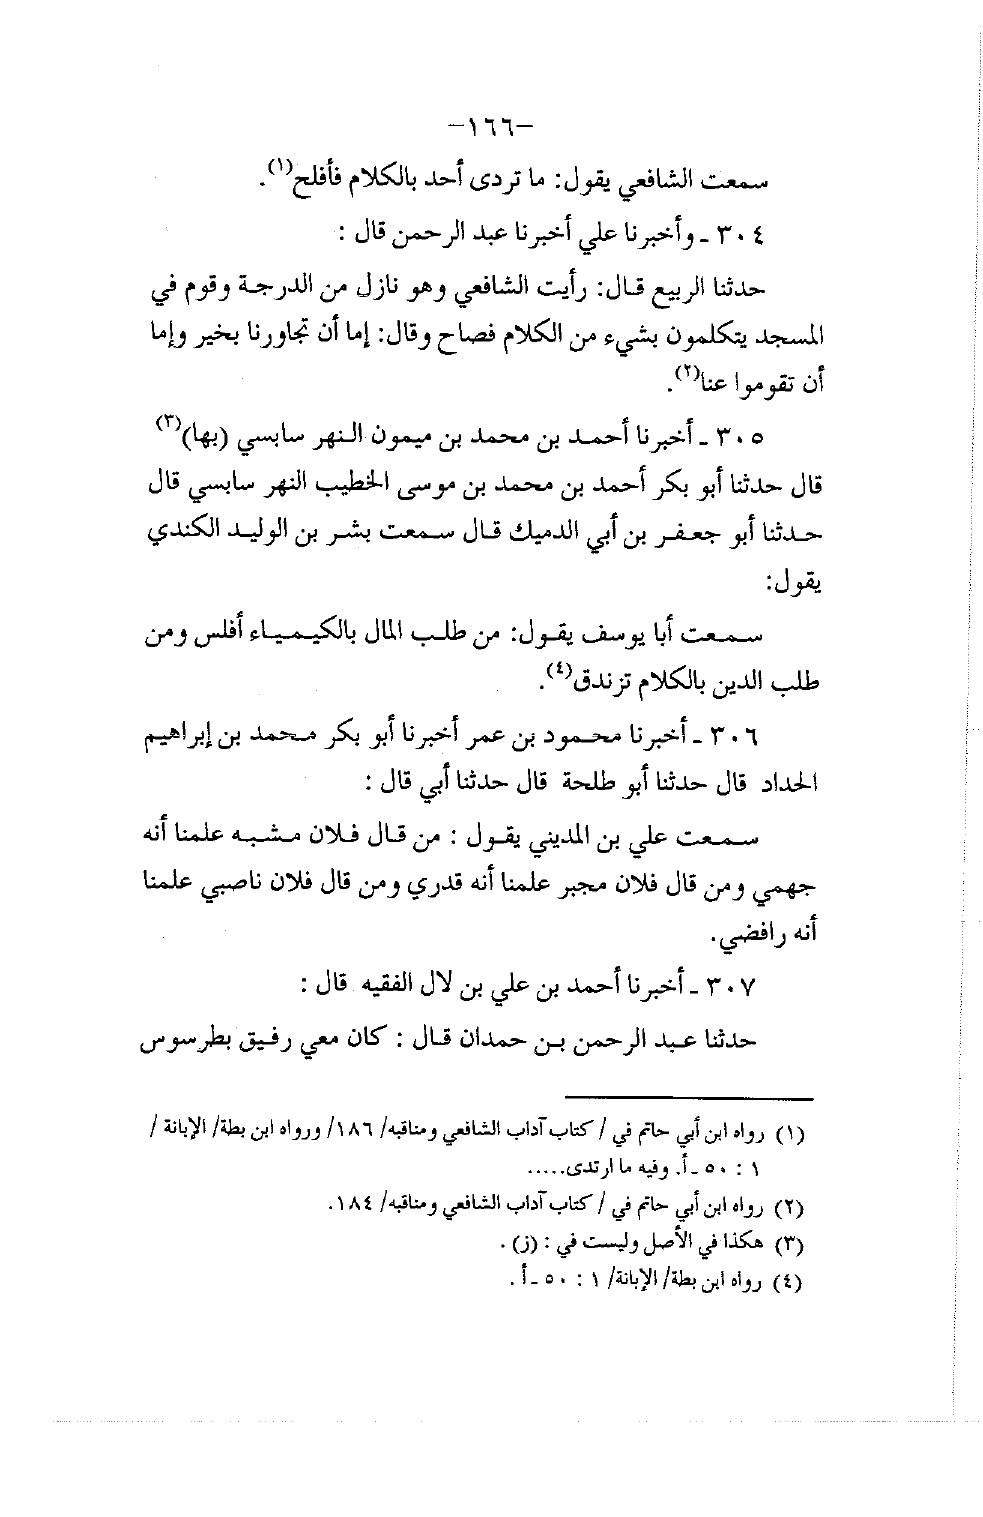 –١٦٦–
سمعت الشافعي يقول: ما تردى أحد بالكلام فأفلح(١).
٣٠٤ ـ وأخبرنا علي أخبرنا عبد الرحمن قال :
حدثنا الربيع قال: رأيت الشافعي وهو نازل من الدرجة وقوم في
المسجد يتكلمون بشيء من الكلام فصاح وقال: إما أن تجاورنا بخير وإما
أن تقوموا عنا(٢).
٣٠٥ ـ أخبرنا أحمد بن محمد بن ميمون النهر سابسي (بها)(٣)
قال حدثنا أبو بكر أحمد بن محمد بن موسى الخطيب النهر سابسي قال
حدثنا أبو جعفر بن أبي الدميك قال سمعت بشر بن الوليد الكندي
يقول:
سمعت أبا يوسف يقول: من طلب المال بالكيمياء أفلس ومن
طلب الدين بالكلام تزندق(٤).
٣٠٦ ـ أخبرنا محمود بن عمر أخبرنا أبو بكر محمد بن إبراهيم
الحداد قال حدثنا أبو طلحة قال حدثنا أبي قال :
سمعت علي بن المديني يقول : من قال فلان مشبه علمنا أنه
جهمي ومن قال فلان مجبر علمنا أنه قدري ومن قال فلان ناصبي علمنا
أنه رافضي.
٣٠٧ ـ أخبرنا أحمد بن علي بن لال الفقيه قال :
حدثنا عبد الرحمن بن حمدان قال : كان معي رفيق بطرسوس
(١) رواه ابن أبي حاتم في / كتاب آداب الشافعي ومناقبه/ ١٨٦/ ورواه ابن بطة/ الإبانة /
١ : ٥٠ ـ أ. وفيه ما ارتدى.....
(٢) رواه ابن أبي حاتم في / كتاب آداب الشافعي ومناقبه/ ١٨٤.
(٣) هكذا في الأصل وليست في : (ز) .
(٤) رواه ابن بطة/ الإبانة/ ١ : ٥٠ ـ أ .